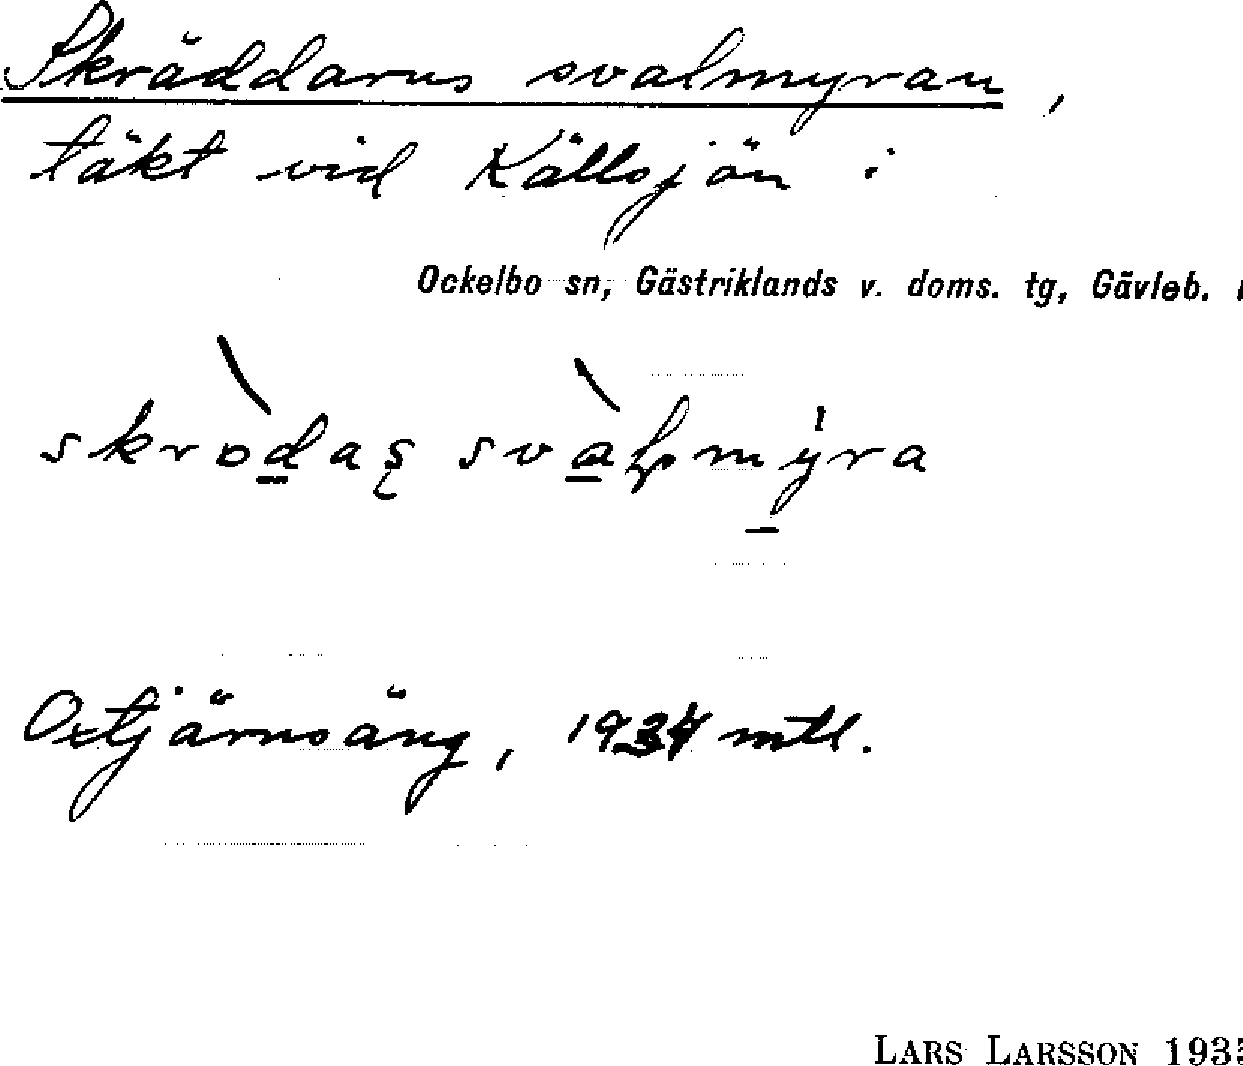 Skräddarns svalmyran,
täkt vid Källsjön i
Ockelbo sn, Gästriklands v. doms. tg, Gävleb.
Oxtjärnsäng, 1934 mtl.
LARS LARSSON 193